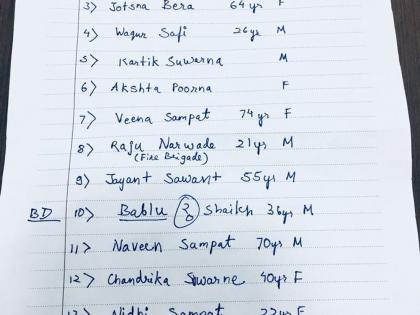 3) Jotsna Bera 64 yr F
4) Waqur Safi 26yr M
5) Kartik Suwarna M
6) Akshta Poorna F
7) Veena Sampat 74yr F
8) Raju Narwade 21yr M
(Fire Brigade)
9) Jayant Sawant 55yr M
BD 10) Bablu Shaikh 36yr M
11) Naveen Sampat 70yr M
12) Chandrika Suvarne 40yr F
13) Nidhi Sampat 22yr F